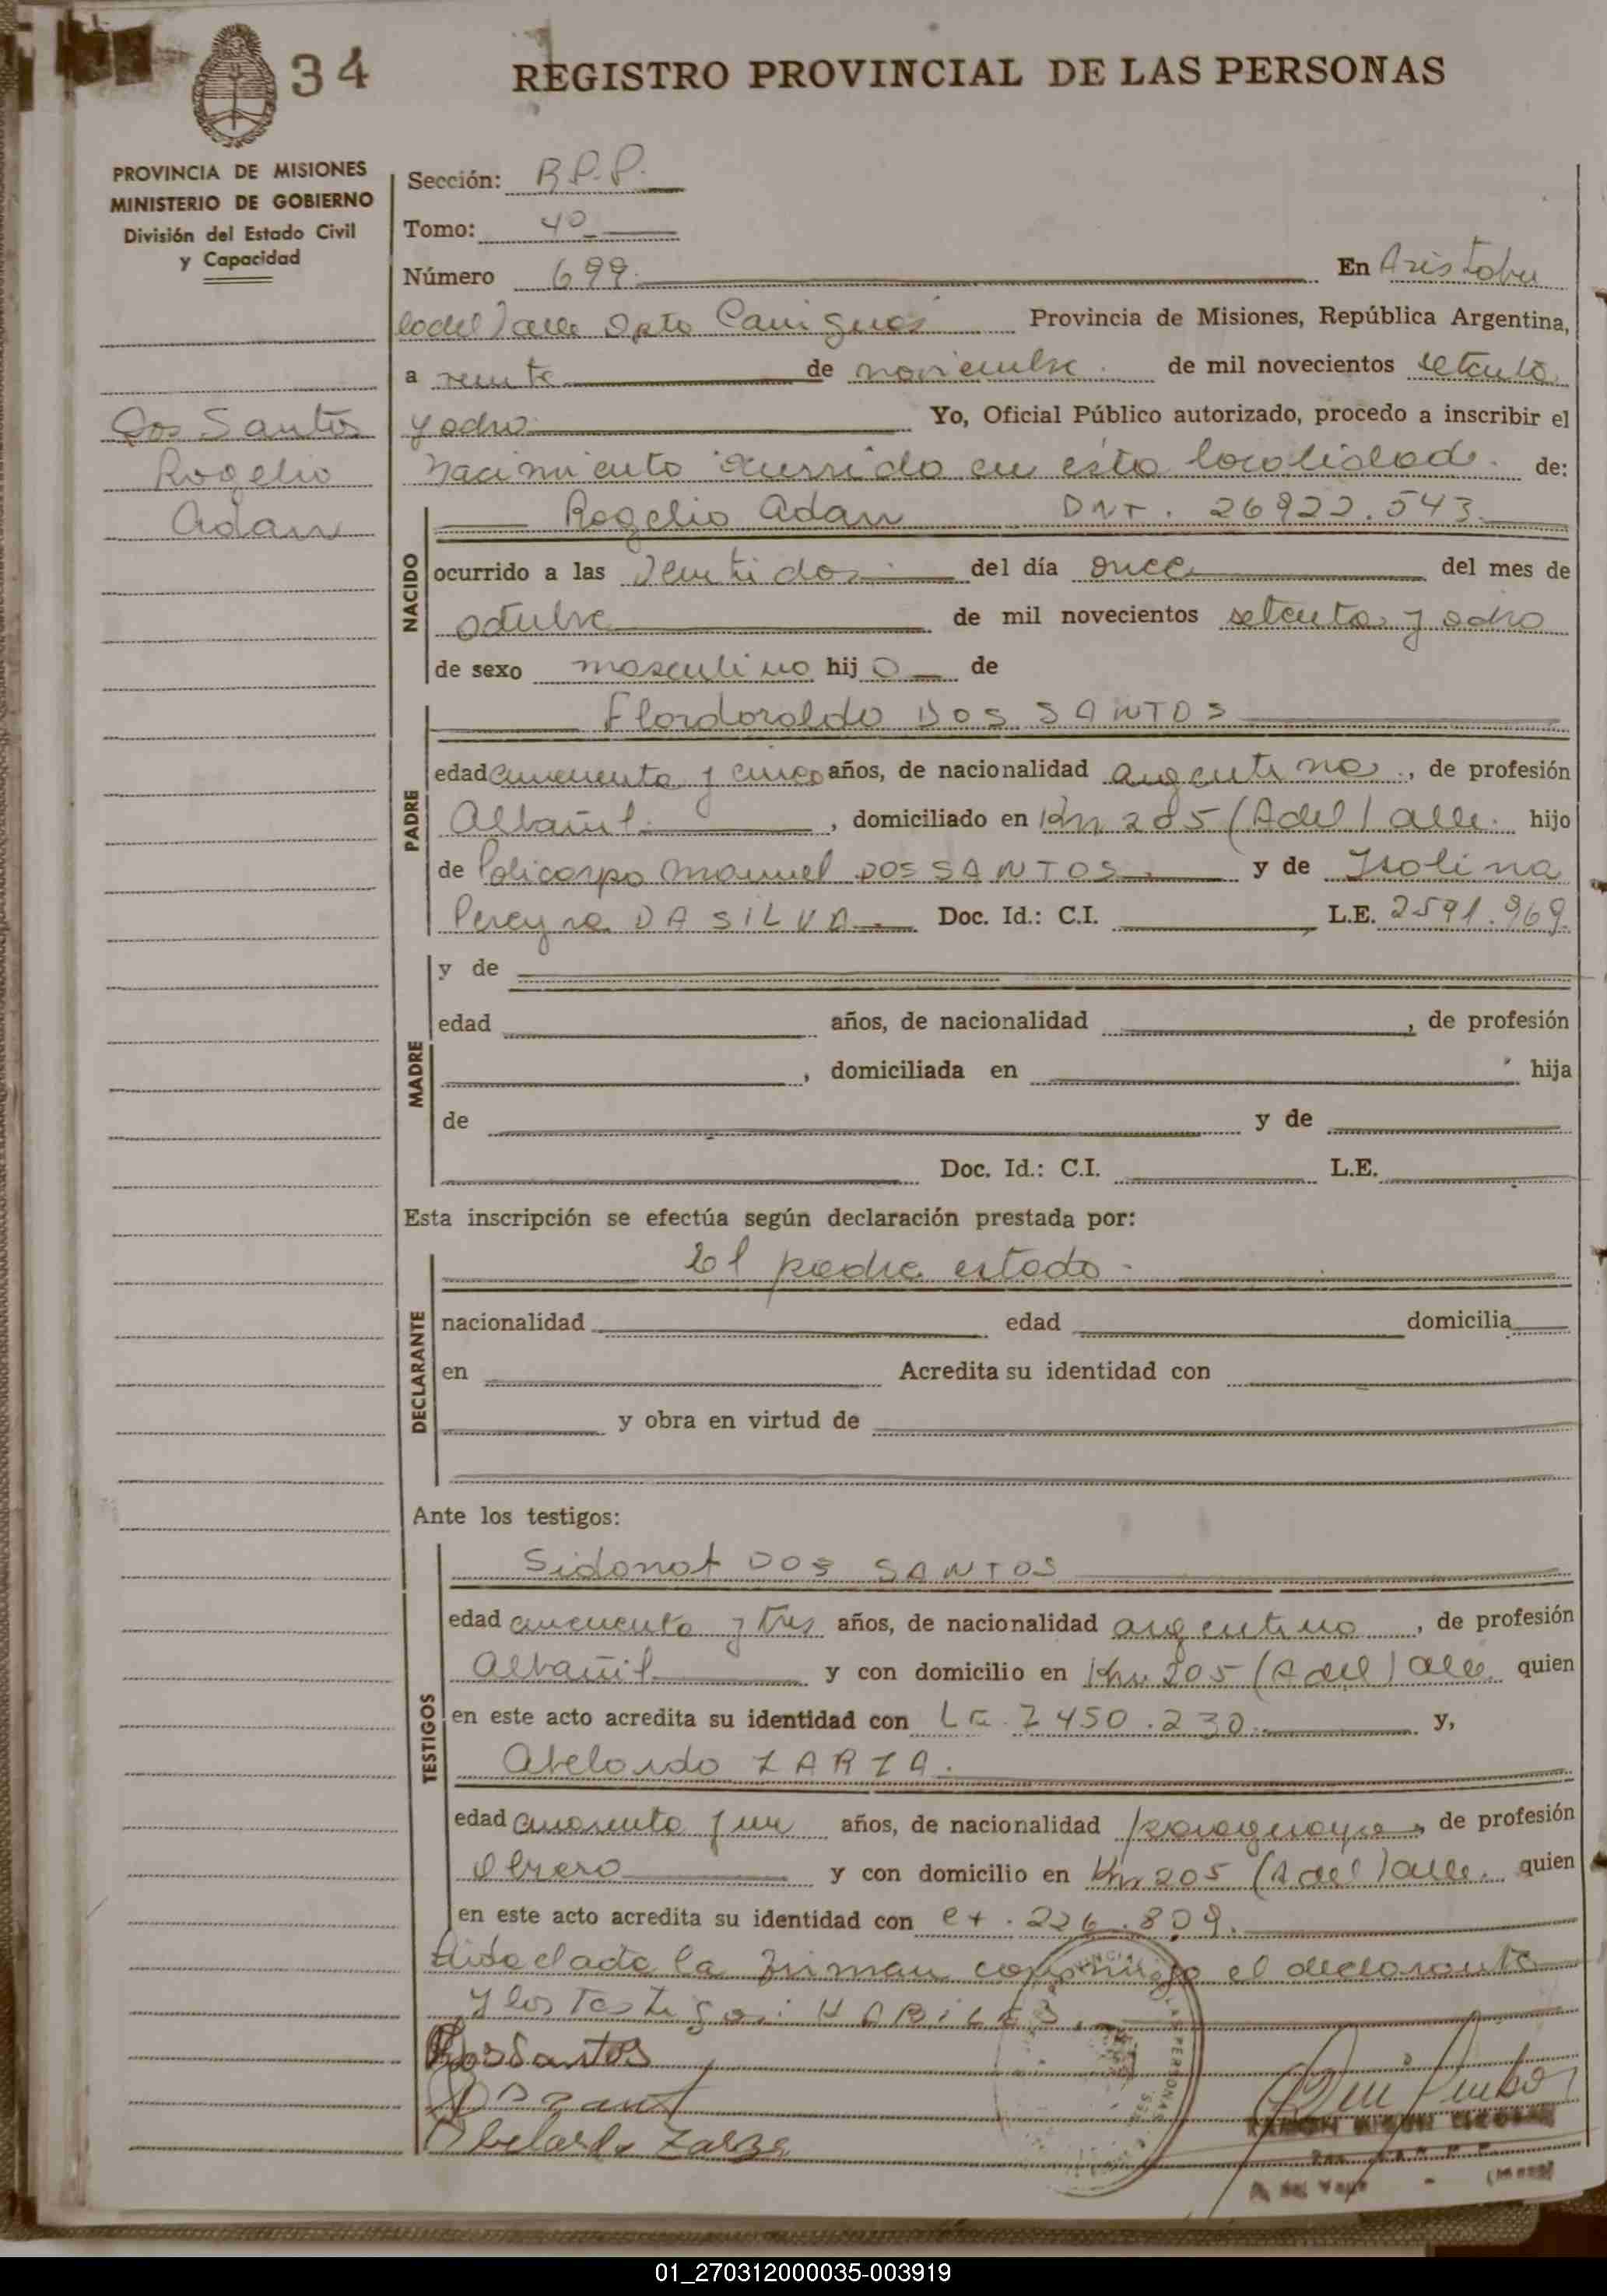 34
REGISTRO PROVINCIAL DE LAS PERSONAS
PROVINCIA DE MISIONES
MINISTERIO DE GOBIERNO
División del Estado Civil
y Capacidad
Dos Santos
Rogelio
Adan
Sección: R.P.P.
Tomo: 4º
Número 699. En Aristobu
lo del Valle Dpto Cainguás Provincia de Misiones, República Argentina,
a veinte de noviembre de mil novecientos setenta
y ocho Yo, Oficial Público autorizado, procedo a inscribir el
nacimiento ocurrido en esta localidad. de:
NACIDO
Rogelio Adan DNI. 26922.543
ocurrido a las veintidos del día once del mes de
octubre de mil novecientos setenta y ocho
de sexo masculino hijo de
PADRE
Flordoraldo DOS SANTOS
edad cincuenta y cinco años, de nacionalidad argentina, de profesión
Albañil, domiciliado en Km 205 (A del Valle. hijo
de Policarpo Manuel DOS SANTOS y de Isolina
Pereyra DA SILVA Doc. Id.: C.I. L.E. 2591.969.
MADRE
y de
edad años, de nacionalidad , de profesión
, domiciliada en hija
de y de
Doc. Id.: C.I. L.E.
Esta inscripción se efectúa según declaración prestada por:
DECLARANTE
El padre citado.
nacionalidad edad domicilia
en Acredita su identidad con
y obra en virtud de
Ante los testigos:
TESTIGOS
Sidonat DOS SANTOS
edad cincuenta y tres años, de nacionalidad argentino, de profesión
Albañil y con domicilio en Km 205 (A del Valle. quien
en este acto acredita su identidad con LE. 7450.230 y,
Abelardo ZARZA.
edad cuarenta y un años, de nacionalidad paraguaya, de profesión
obrero y con domicilio en Km 205 (A del Valle. quien
en este acto acredita su identidad con 226.809.
leida el acta la firman conmigo el declarante
y los testigos: HABILES.
Dos Santos
Abelardo Zarza
A. del Valle (Mnes)
01_270312000035-003919